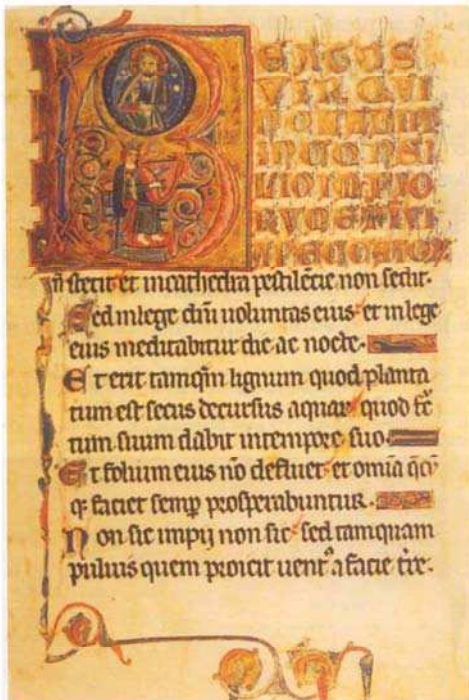 B
EATUS
VIR QUI
NON ABIIT
IN CONSI
LIO IMPIO
RUM ET IN VI
A PECCATOR
ñ stetit et in cathedra pestilēcie non sedit.
Sed in lege dñi uoluntas eius et in lege
eius meditabitur die ac nocte.
Et erit tamq̃m lignum quod planta
tum est secus decursus aquar quod fc̄
tum suum dabit in tempore suo.
Et folium eius nō defluet et omīa q̄cū
q; faciet semp prosperabuntur.
Non sic impij non sic sed tamquam
puluis quem proicit uentᵘ a facie tr̄e.